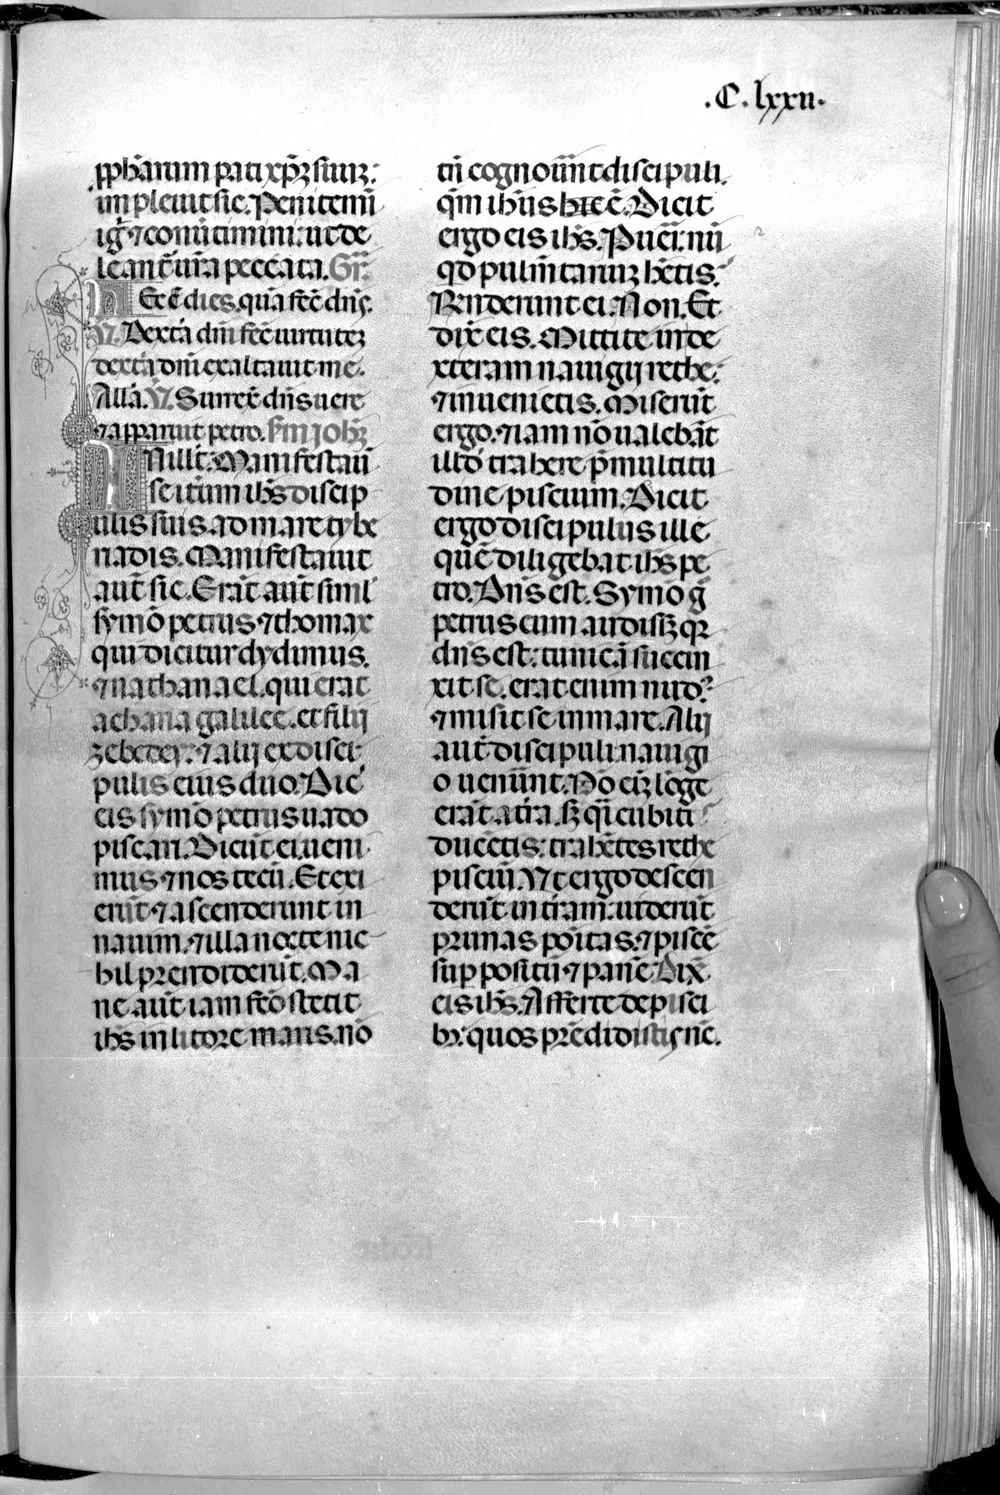 .C.lxxii.
ꝓpħarum pati xp̄ȝ suuȝ:
impleuit sic. Penitemi
igr̄ ⁊ conūtimini: ut de
leant̄ ur̄a peccata. Gr̄.
Hec ē dies. qua fec̄ dn̄s.
V̄. Dextā dn̄i fec̄ uirtuteȝ
dextā dn̄i exaltauit me.
Allā. V̄. Surrex̄ dn̄s uere
⁊ apparuit petro. Sm̄ ioħȝ
In ill̄. Manifestauī
se itūm ihs̄ discip
ulis suis. ad mare tybe
riadis. Manifestauit
aut̄ sic. Erāt aut̄ simĺ
symō petrus ⁊ thomax
qui dicitur dydimus.
⁊ nathanael. qui erat
achana galilee. et filij
ȝebedey: ⁊ alij ex disci
pulis eius duo. Dic̄
eis symō petrus uado
piscari. Dicūt ei. ueni
mus ⁊ nos tecū. Et exi
erūt ⁊ ascenderunt in
nauim. ⁊ illa nocte nic
hil prendiderūt. Ma
ne aut̄ iam fcō stetit
ihs̄ in litore maris. nō
tn̄ cognoūnt discipuli.
qm̄ ihūs hec ē. Dicit
ergo eis ihs̄. Pueri: nū
qd̄ pulm̄tariuȝ hētis.
Rn̄derunt ei. Non. Et
dix̄ eis. Mittite in de
xteram nauigij rethe:
⁊ inuenietis. Miserūt
ergo. ⁊ iam nō ualebāt
illd̄ trahere p̄ multitu
dine piscium. Dicit
ergo discipulus ille
quē diligebat ihs̄ pe
tro. Dn̄s est. Symō g̊
petrus cum audisȝ qꝛ
dn̄s est: tunicā succin
xit se. erat enim nud᷒
⁊ misit se in mare. Alij
aut̄ discipuli nauigi
o uenūnt. Nō eı̄ lōge
erāt a t̄ra. sȝ qı̄ cubiti
ducētis: trahētes rethe
pisciū. Vt ergo descen
derūt in t̄ram: uiderūt
prunas poitas. ⁊ piscē
suꝑpositū ⁊ panē. Dix̄
eis ihs̄. Afferte de pisci
bꝫ: quos prēdidistis nc̄.